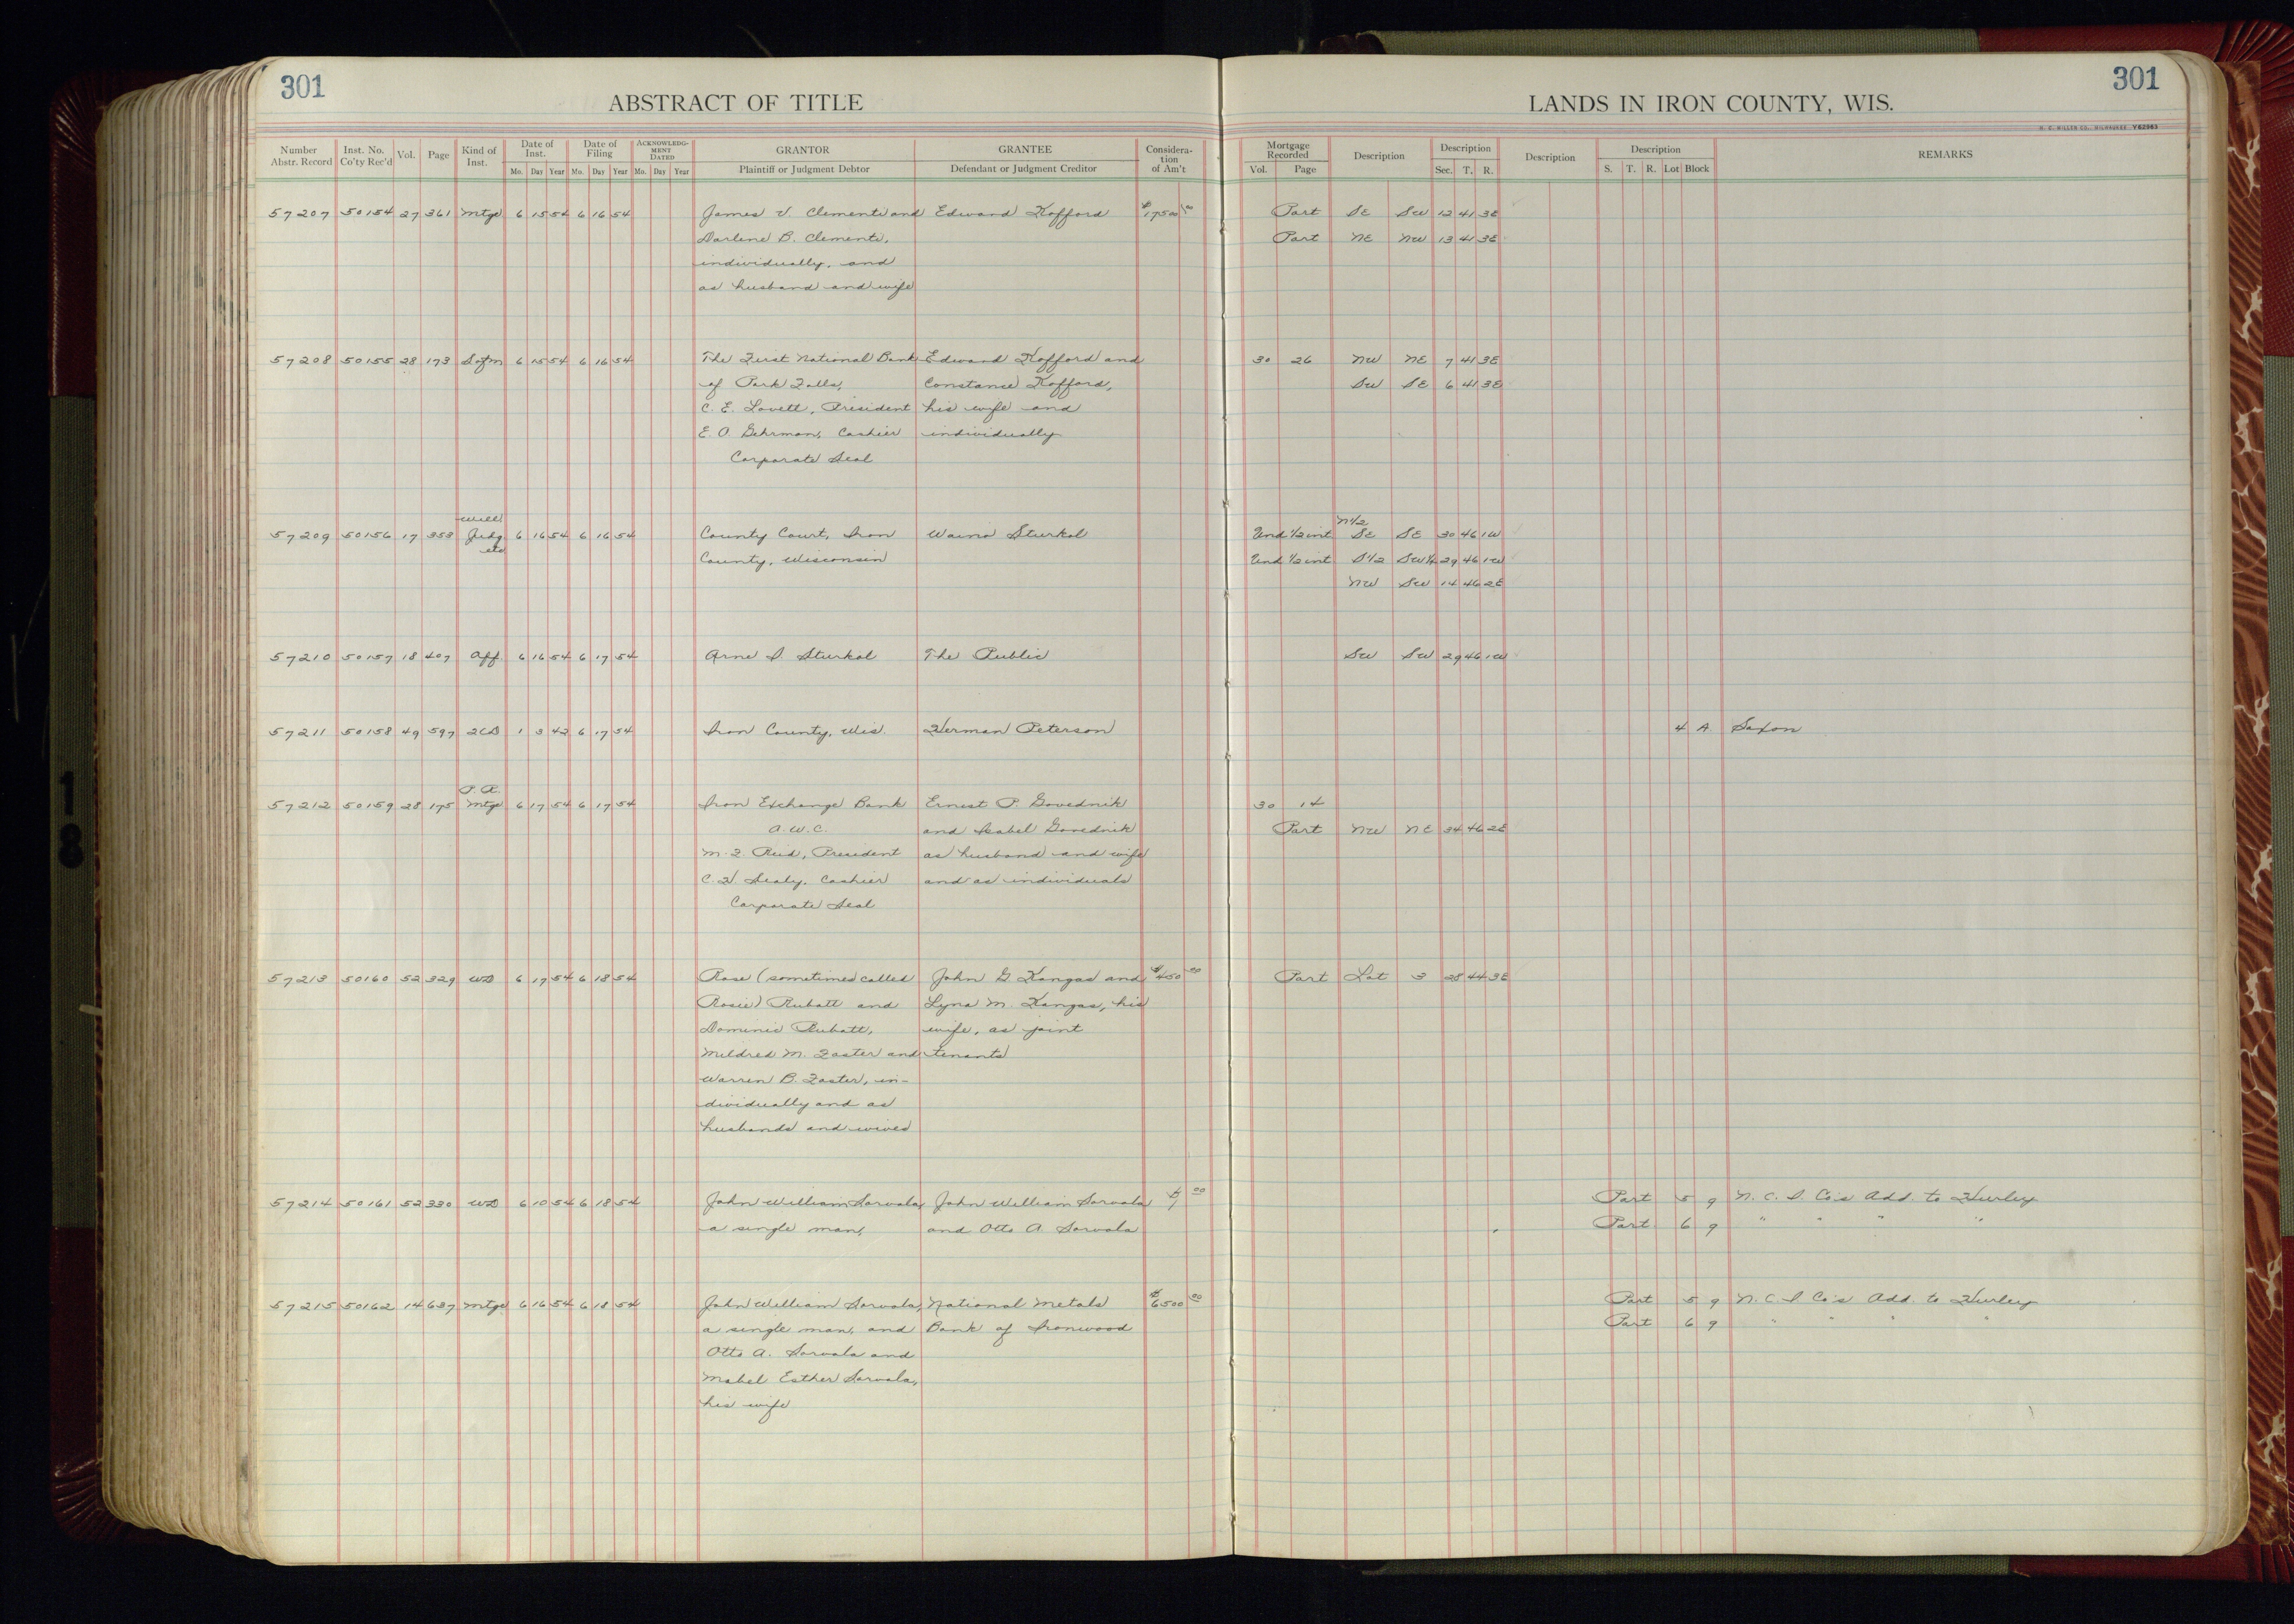 301
301
ABSTRACT OF TITLE
LANDS IN IRON COUNTY, WIS.
H. C. MILLER CO., MILWAUKEE Y62963
Number Abstr. Record Inst. No. Co'ty Rec'd Vol. Page Kind of Inst. Date of Inst. Mo. Day Year Date of Filing Mo. Day Year ACKNOWLEDGMENT DATED Mo. Day Year GRANTOR Plaintiff or Judgment Debtor GRANTEE Defendant or Judgment Creditor Consideration of Am't Mortgage Recorded Vol. Page Description Description Sec. T. R. Description Description S. T. R. Lot Block REMARKS
57207 50154 27 361 Mtge 6 15 54 6 16 54 James V. Clementi and Edward Kofford $17500 00 Part SE SW 12 41 3E
Darlene B. Clementi, Part NE NW 13 41 3E
individually, and
as husband and wife
57208 50155 28 173 Sofm 6 15 54 6 16 54 The First National Bank Edward Kofford and 30 26 NW NE 7 41 3E
of Park Falls, Constance Kofford, SW SE 6 41 3E
C. E. Lovett, President his wife and
E. A. Gehrman, Cashier individually
Corporate Seal
Will N1/2
57209 50156 17 353 Judg 6 16 54 6 16 54 County Court, Iron Waino Sturkol Und 1/2 int SE SE 30 46 1W
etc County, Wisconsin Und 1/2 int S1/2 SW1/4 29 46 1W
NW SW 14 46 2E
57210 50157 18 407 Aff 6 16 54 6 17 54 Arne I. Sturkol The Public SW SW 29 46 1W
57211 50158 49 597 2CD 1 3 42 6 17 54 Iron County, Wis. Herman Peterson 4 A. Saxon
P. R.
57212 50159 28 175 Mtge 6 17 54 6 17 54 Iron Exchange Bank Ernest P. Govednik 30 14
A. W. C. and Isabel Govednik Part NW NE 34 46 2E
M. F. Reid, President as husband and wife
C. H. Sealy, Cashier and as individuals
Corporate Seal
57213 50160 52 329 WD 6 17 54 6 18 54 Rose (sometimes called John G Kangas and $450 00 Part Lot 3 28 44 3E
Rosie) Rubatt and Lyna M. Kangas, his
Dominic Rubatt, wife, as joint
Mildred M. Faster and tenants
Warren B. Faster, in-
dividually and as
husbands and wives
57214 50161 52 330 WD 6 10 54 6 18 54 John William Sarvala, John William Sarvala $1 00 Part 5 9 N. C. I. Co's Add. to Hurley
a single man, and Otto A. Sarvala Part 6 9 " " " "
57215 50162 14 637 Mtge 6 16 54 6 18 54 John William Sarvala, National Metals $6500 00 Part 5 9 N. C. I. Co's Add. to Hurley
a single man, and Bank of Ironwood Part 6 9 " " " "
Otto A. Sarvala and
Mabel Esther Sarvala,
his wife
18